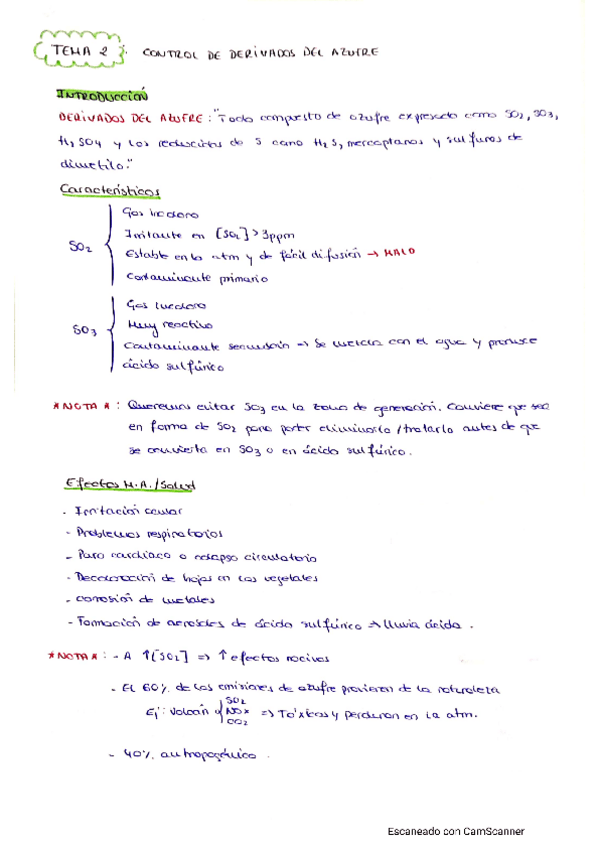 TEMA 2 : CONTROL DE DERIVADOS DEL AZUFRE
INTRODUCCIÓN
DERIVADOS DEL AZUFRE : "Todo compuesto de azufre expresado como SO2, SO3,
H2SO4 y los reducidos de S como H2S, mercaptanos y sulfuros de
dimetilo."
Características
SO2
Gas incoloro
Irritante en [SO2] > 3ppm
Estable en la atm y de fácil difusión → MALO
Contaminante primario
SO3
Gas incoloro
Muy reactivo
Contaminante secundario → Se mezcla con el agua y produce
ácido sulfúrico
*NOTA* : Queremos evitar SO3 en la zona de generación. Conviene que sea
en forma de SO2 para poder eliminarlo/tratarlo antes de que
se convierta en SO3 o en ácido sulfúrico.
Efectos M.A./Salud
- Irritación ocular
- Problemas respiratorios
- Paro cardíaco o colapso circulatorio
- Decoloración de hojas en los vegetales
- Corrosión de metales
- Formación de aerosoles de ácido sulfúrico → lluvia ácida.
*NOTA* : - A ↑[SO2] => ↑ efectos nocivos
- El 60% de las emisiones de azufre provienen de la naturaleza
Ej: Volcán { SO2 NOx CO2 => Tóxicos y perduran en la atm.
- 40% antropogénico.
Escaneado con CamScanner